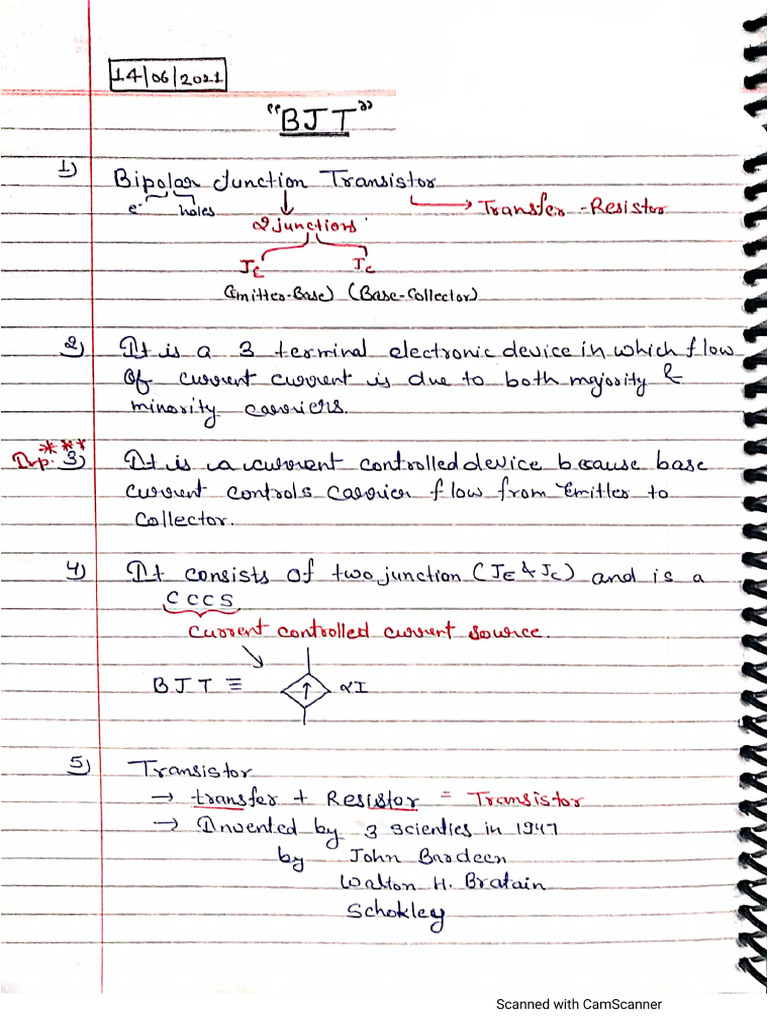 14/06/2021
"BJT"
1) Bipolar Junction Transistor
e- holes 2 junctions → Transfer-Resistor
JE JC
(Emitter-Base) (Base-Collector)
2) It is a 3 terminal electronic device in which flow
of current current is due to both majority &
minority carriers.
***
Imp. 3) It is a current controlled device because base
current controls carrier flow from Emitter to
Collector.
4) It consists of two junction (JE & JC) and is a
CCCS
Current controlled current source.
BJT ≡ ↑ αI
5) Transistor
→ transfer + Resistor = Transistor
→ Invented by 3 scienties in 1947
by John Bardeen
Walton H. Bratain
Schokley
Scanned with CamScanner